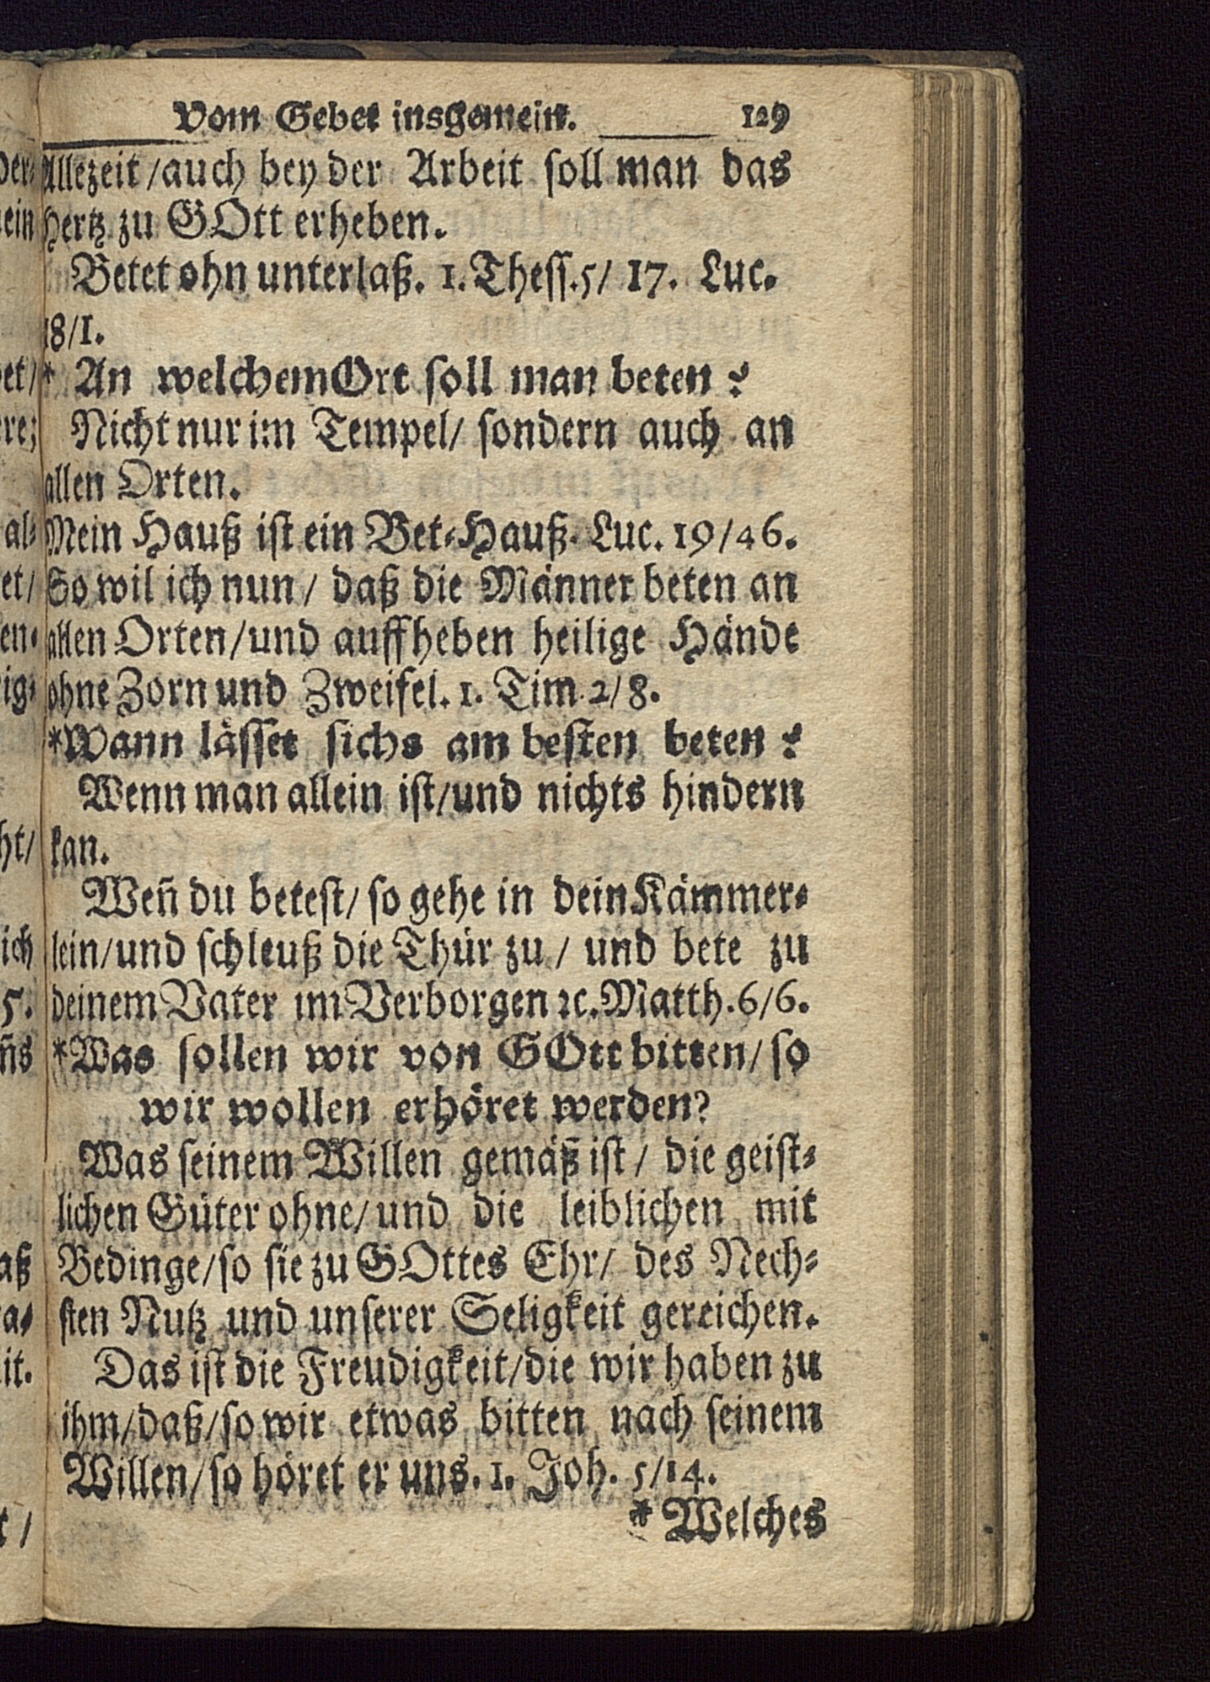 Vom Gebet insgemein. 129
Allezeit / auch bey der Arbeit soll man das
Hertz zu GOtt erheben.
Betet ohn unterlaß. 1. Thess. 5/ 17. Luc.
18/1.
* An welchem Ort soll man beten?
Nicht nur im Tempel/ sondern auch an
allen Orten.
Mein Hauß ist ein Bet-Hauß. Luc. 19/46.
So wil ich nun / daß die Männer beten an
allen Orten/und auffheben heilige Hände
ohne Zorn und Zweifel. 1. Tim. 2/8.
*Wann lässet sichs am besten beten?
Wenn man allein ist/und nichts hindern
kan.
Weñ du betest/ so gehe in dein Kämmer-
lein/und schleuß die Thür zu / und bete zu
deinem Vater im Verborgen ꝛc. Matth. 6/6.
*Was sollen wir von GOtt bitten/ so
wir wollen erhöret werden?
Was seinem Willen gemäß ist / die geist-
lichen Güter ohne/ und die leiblichen mit
Bedinge/so sie zu GOttes Ehr/ des Nech-
sten Nutz und unserer Seligkeit gereichen.
Das ist die Freudigkeit/die wir haben zu
ihm/daß/so wir etwas bitten nach seinem
Willen/so höret er uns. 1. Joh. 5/14.
* Welches